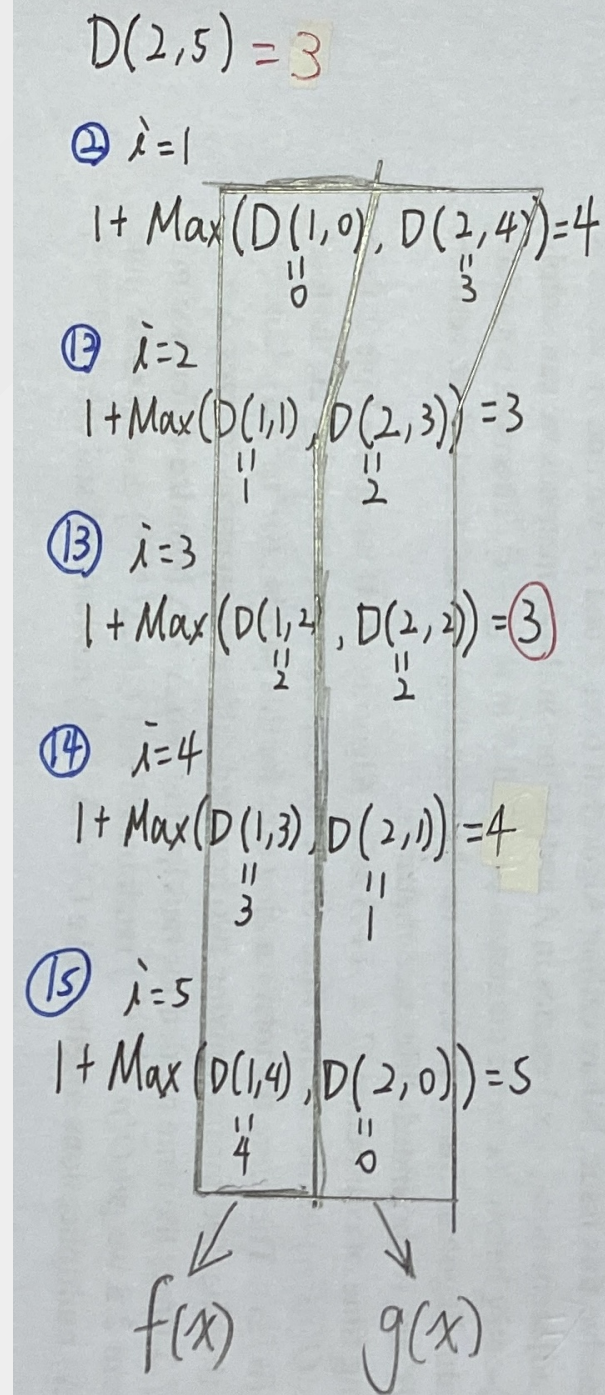 D(2,5) = 3
② i=1
1+ Max(D(1,0), D(2,4))=4
=0
=3
⑫ i=2
1+Max(D(1,1), D(2,3)) =3
=1
=2
⑬ i=3
1+Max(D(1,2), D(2,2)) =③
=2
=2
⑭ i=4
1+ Max(D(1,3), D(2,1)) =4
=3
=1
⑮ i=5
1+ Max(D(1,4), D(2,0))=5
=4
=0
f(x) g(x)